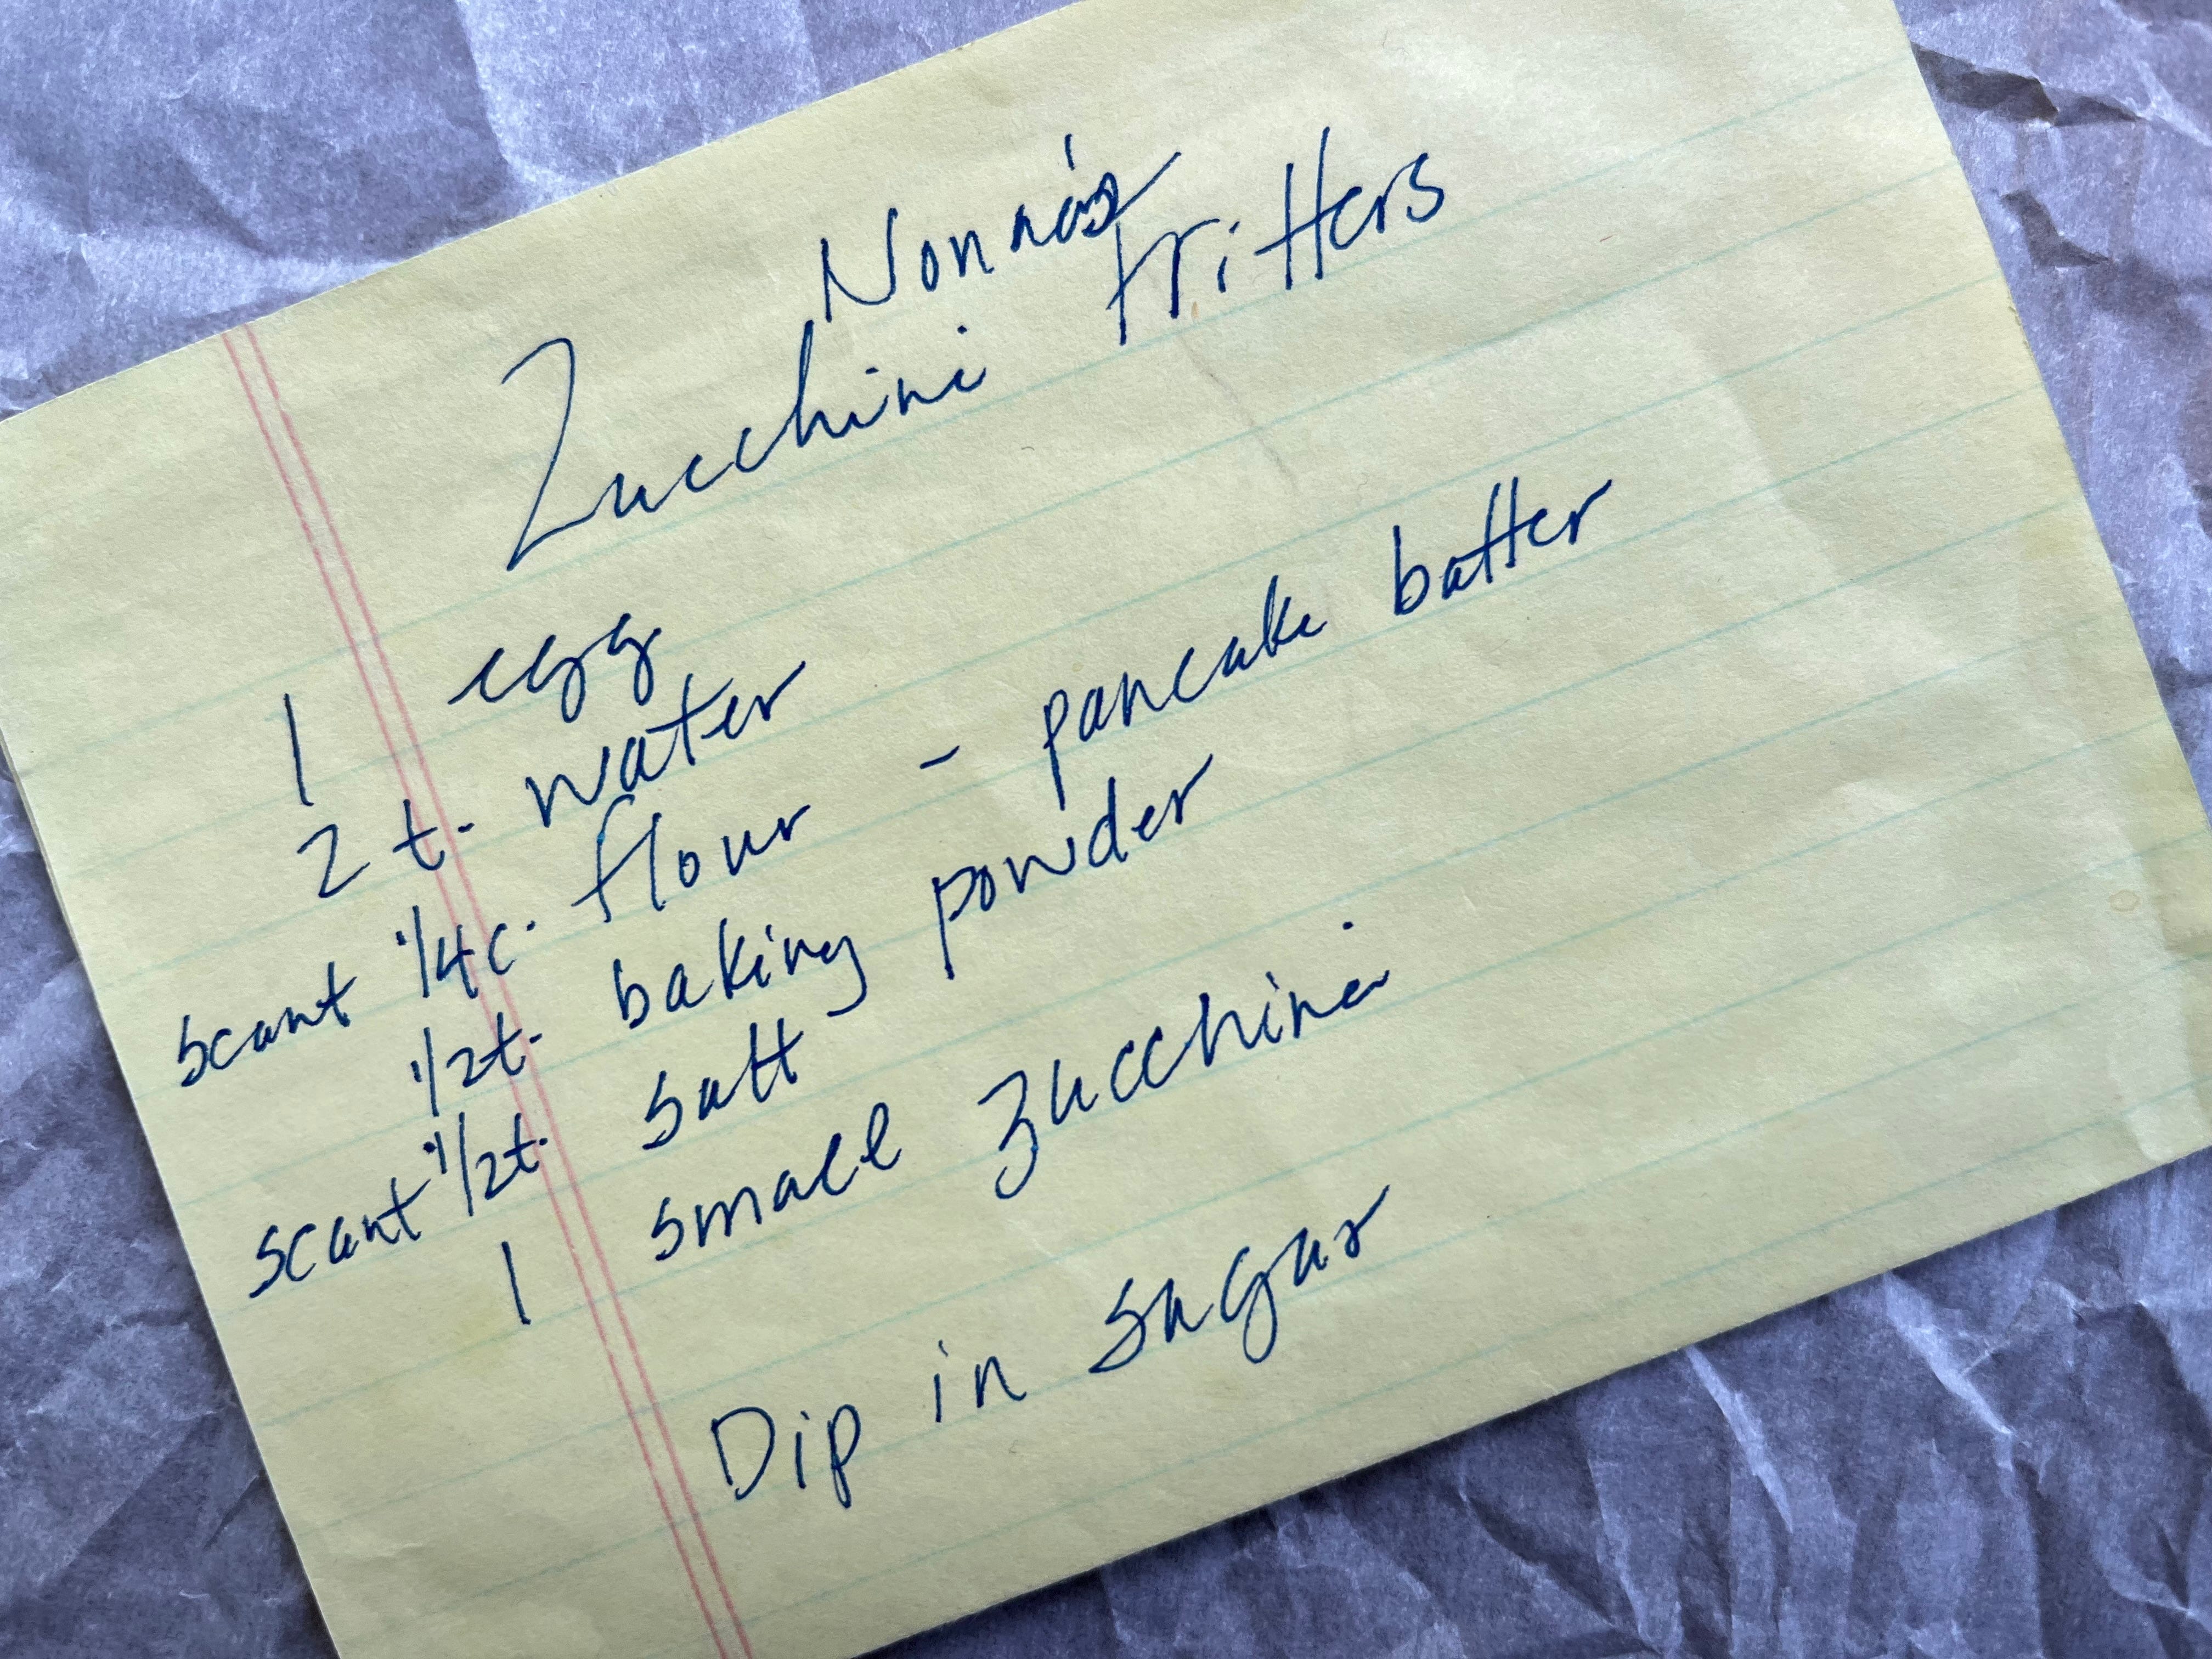 Nonna's
Zucchini fritters
1 egg
2 t. water
scant 1/4 c. flour - pancake batter
1/2 t. baking powder
scant 1/2 t. salt
1 small zucchini
Dip in sugar